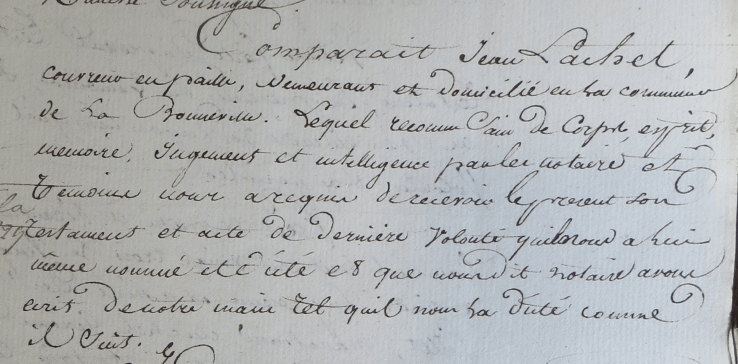 Comparait Jean Lachet,
couvreur en paille, demeurant et domicilié en la commune
de La Bonneville. Lequel reconnu Sain de Corps, esprit,
memoire, Jugement et intelligence par les notaire et
temoins nous a requis de recevoir le present son
testament et acte de derniére Volonté quil nous a lui
même nommé et dité et que nous dit notaire avons
ecrit de notre main tel quil nous la dité comme
il Suit.